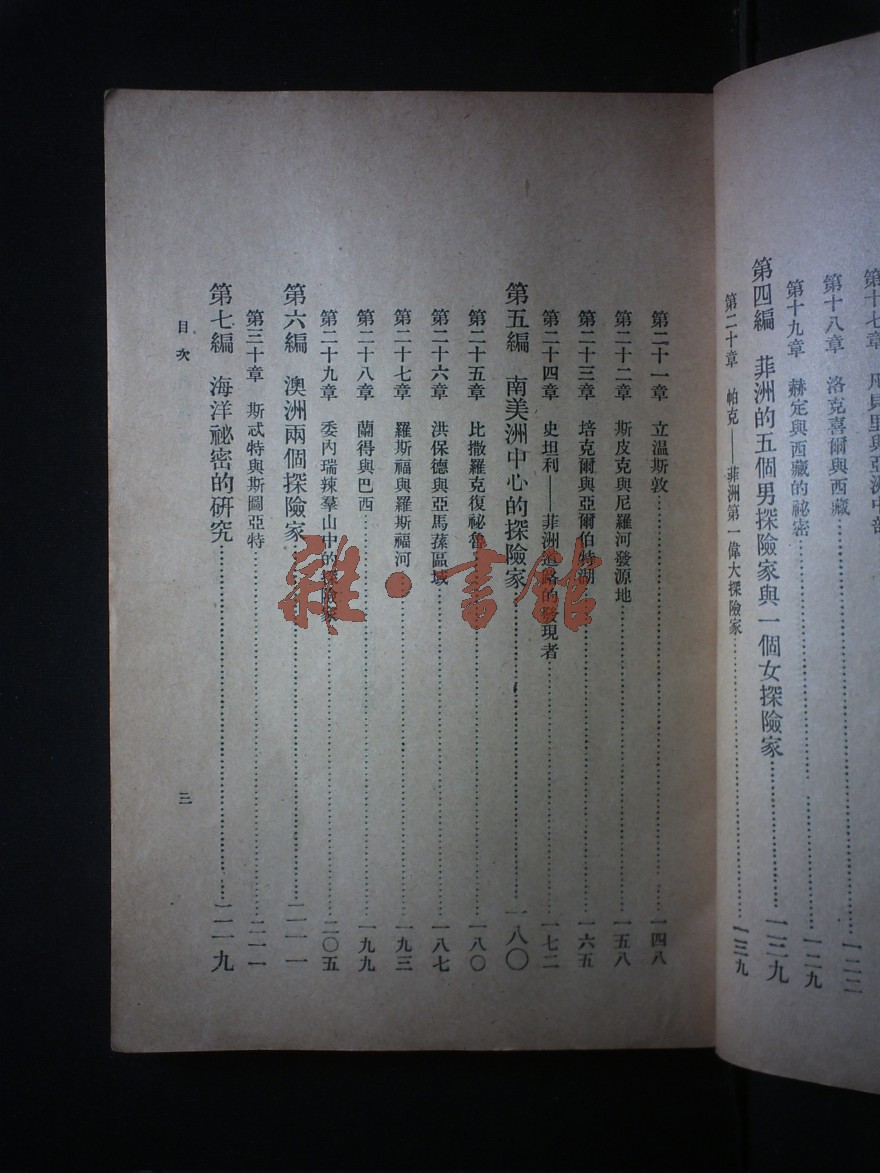 第十七章 凡貝里與亞洲中部
第十八章 洛克喜爾與西藏……一二二
第十九章 赫定與西藏的祕密……一二九
第四編 菲洲的五個男探險家與一個女探險家……一三九
第二十章 帕克——菲洲第一偉大探險家……一三九
第二十一章 立温斯敦……一四八
第二十二章 斯皮克與尼羅河發源地……一五八
第二十三章 培克爾與亞爾伯特湖……一六五
第二十四章 史坦利——菲洲道路的發現者……一七二
第五編 南美洲中心的探險家……一八〇
第二十五章 比撒羅克復祕魯……一八〇
第二十六章 洪保德與亞馬蓀區域……一八七
第二十七章 羅斯福與羅斯福河……一九三
第二十八章 蘭得與巴西……一九九
第二十九章 委內瑞辣羣山中的探險家……二〇五
第六編 澳洲兩個探險家……二一一
第三十章 斯忒特與斯圖亞特……二一一
第七編 海洋祕密的研究……二一九
目次
三
雜·書館